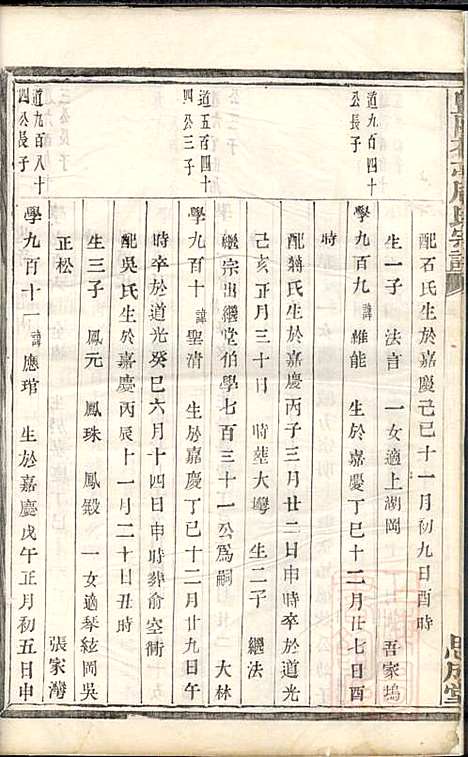 配石氏生於嘉慶己巳十一月初九日酉時
生一子 法言 一女適上湖岡 吾家塢
道九百四十
公長子
學九百九 諱維能 生於嘉慶丁巳十二月廿七日酉
時
配蔣氏生於嘉慶丙子三月廿二日申時卒於道光
己亥正月三十日 時塟大㙛 生二子 繼法
繼宗出繼堂伯學七百三十一公為嗣 大林
道五百四十
四公三子
學九百十 諱聖清 生於嘉慶丁巳十二月廿九日午
時卒於道光癸巳六月十四日申時葬俞空衝
配吳氏生於嘉慶丙辰十一月二十日丑時
生三子 鳳元 鳳珠 鳳鍛 一女適琴絃岡吳
正松 張家灣
道九百八十
四公長子
學九百十一 諱應琯 生於嘉慶戊午正月初五日申
氏宗譜
思成堂